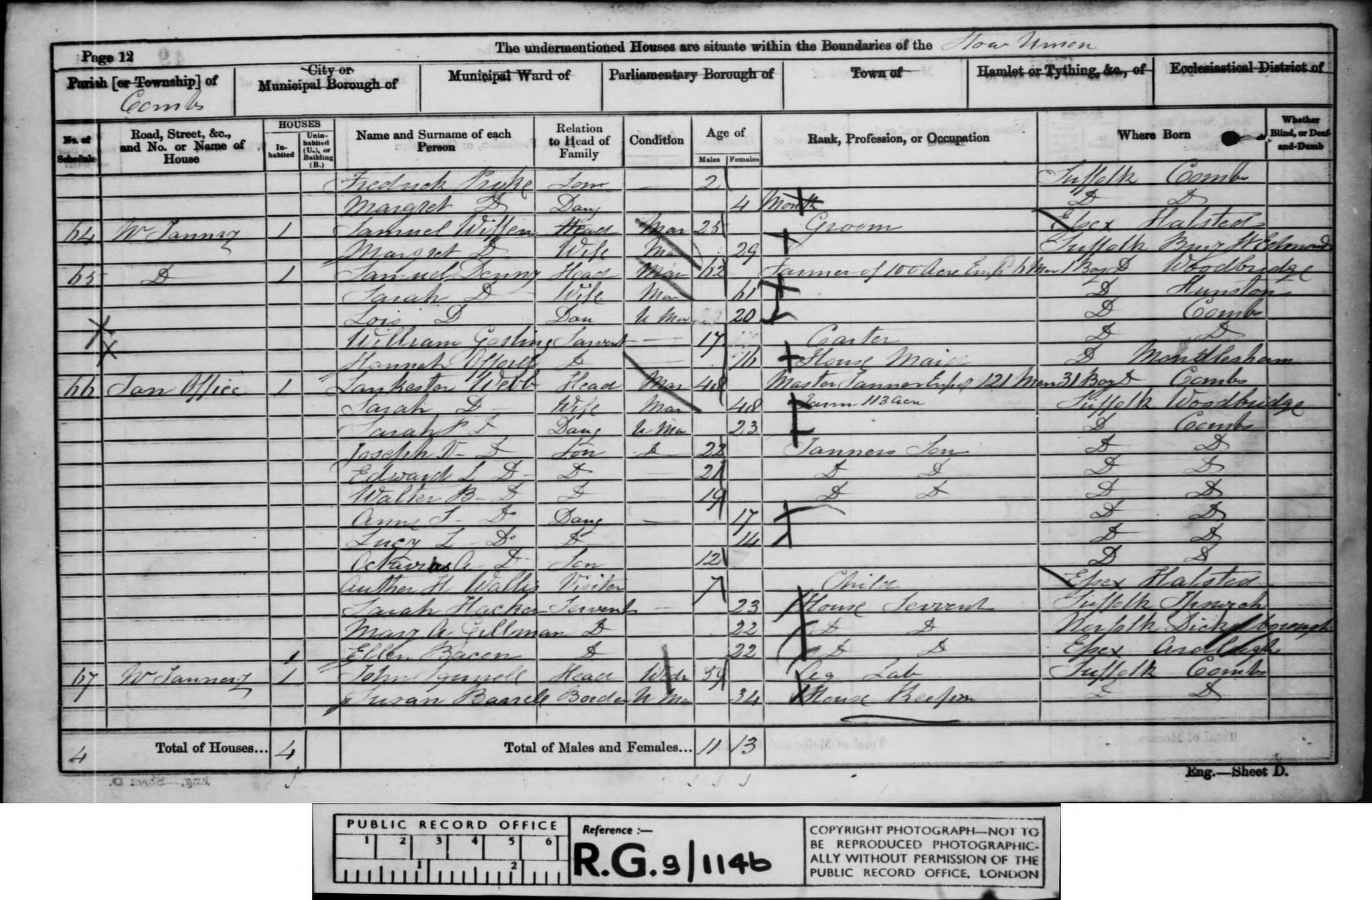 Page 12
The undermentioned Houses are situate within the Boundaries of the Stow Union
Parish [or Township] of
Combs
City or
Municipal Borough of
Municipal Ward of
Parliamentary Borough of
Town of
Hamlet or Tything, &c., of
Ecclesiastical District of
No. of Schedule
Road, Street, &c., and No. or Name of House
HOUSES
In-habited
Unin-habited (U.), or Building (B.)
Name and Surname of each Person
Relation to Head of Family
Condition
Age of
Males
Females
Rank, Profession, or Occupation
Where Born
Whether Blind, or Deaf-and-Dumb
Fredrick Pryke Son — 2 Suffolk Combs
Margret D Daug 4 Month D D
64 Wm Tannery 1 Samuel Head Mar 25 Groom Essex Halsted
Margret D Wife Mar 29 Suffolk Bury St Edmunds
65 D 1 Samuel Denny Head Mar 62 Farmer of 100 Acre 6 Men 1 Boy D Woodbridge
Sarah D Wife Mar 61 D Hunston
Lois D Dau U Mar 20 D Combs
William Gosling Servent — 17 Carter D D
Hannah D 16 House Maid D Mendlesham
66 Tan Office 1 Lankester Webb Head Mar 48 Master Tanner 121 Men 31 Boys D Combs
Sarah D Wife Mar 48 Farm 113 Acre Suffolk Woodbridge
Sarah P D Daug U Mar 23 D Combs
Joseph D Son D 22 Tanners Son D D
Edward L D D 21 D D D D
Walter B D D 19 D D D D
Ann D Daug — 17 D D
Lucy L D D 14 D D
Octavius A D Son 12 D D
Auther H Wallis Visiter 7 Child Essex Halsted
Sarah Hacker Servent — 23 House Servent Suffolk
Mary A Gillman D 22 D D Norfolk Dickleborough
Ellen Bacon D 22 D D Essex Ardleigh
67 Wm Tannery 1 John Head Wide 59 Ag Lab Suffolk Combs
Susan Barrell Border U Mar 34 House Keeper D
4 Total of Houses... 4 Total of Males and Females... 11 13
Eng.—Sheet D.
PUBLIC RECORD OFFICE
1 2 3 4 5 6
1 2
Reference :—
R.G. 9/1146
COPYRIGHT PHOTOGRAPH—NOT TO
BE REPRODUCED PHOTOGRAPHIC-
ALLY WITHOUT PERMISSION OF THE
PUBLIC RECORD OFFICE, LONDON